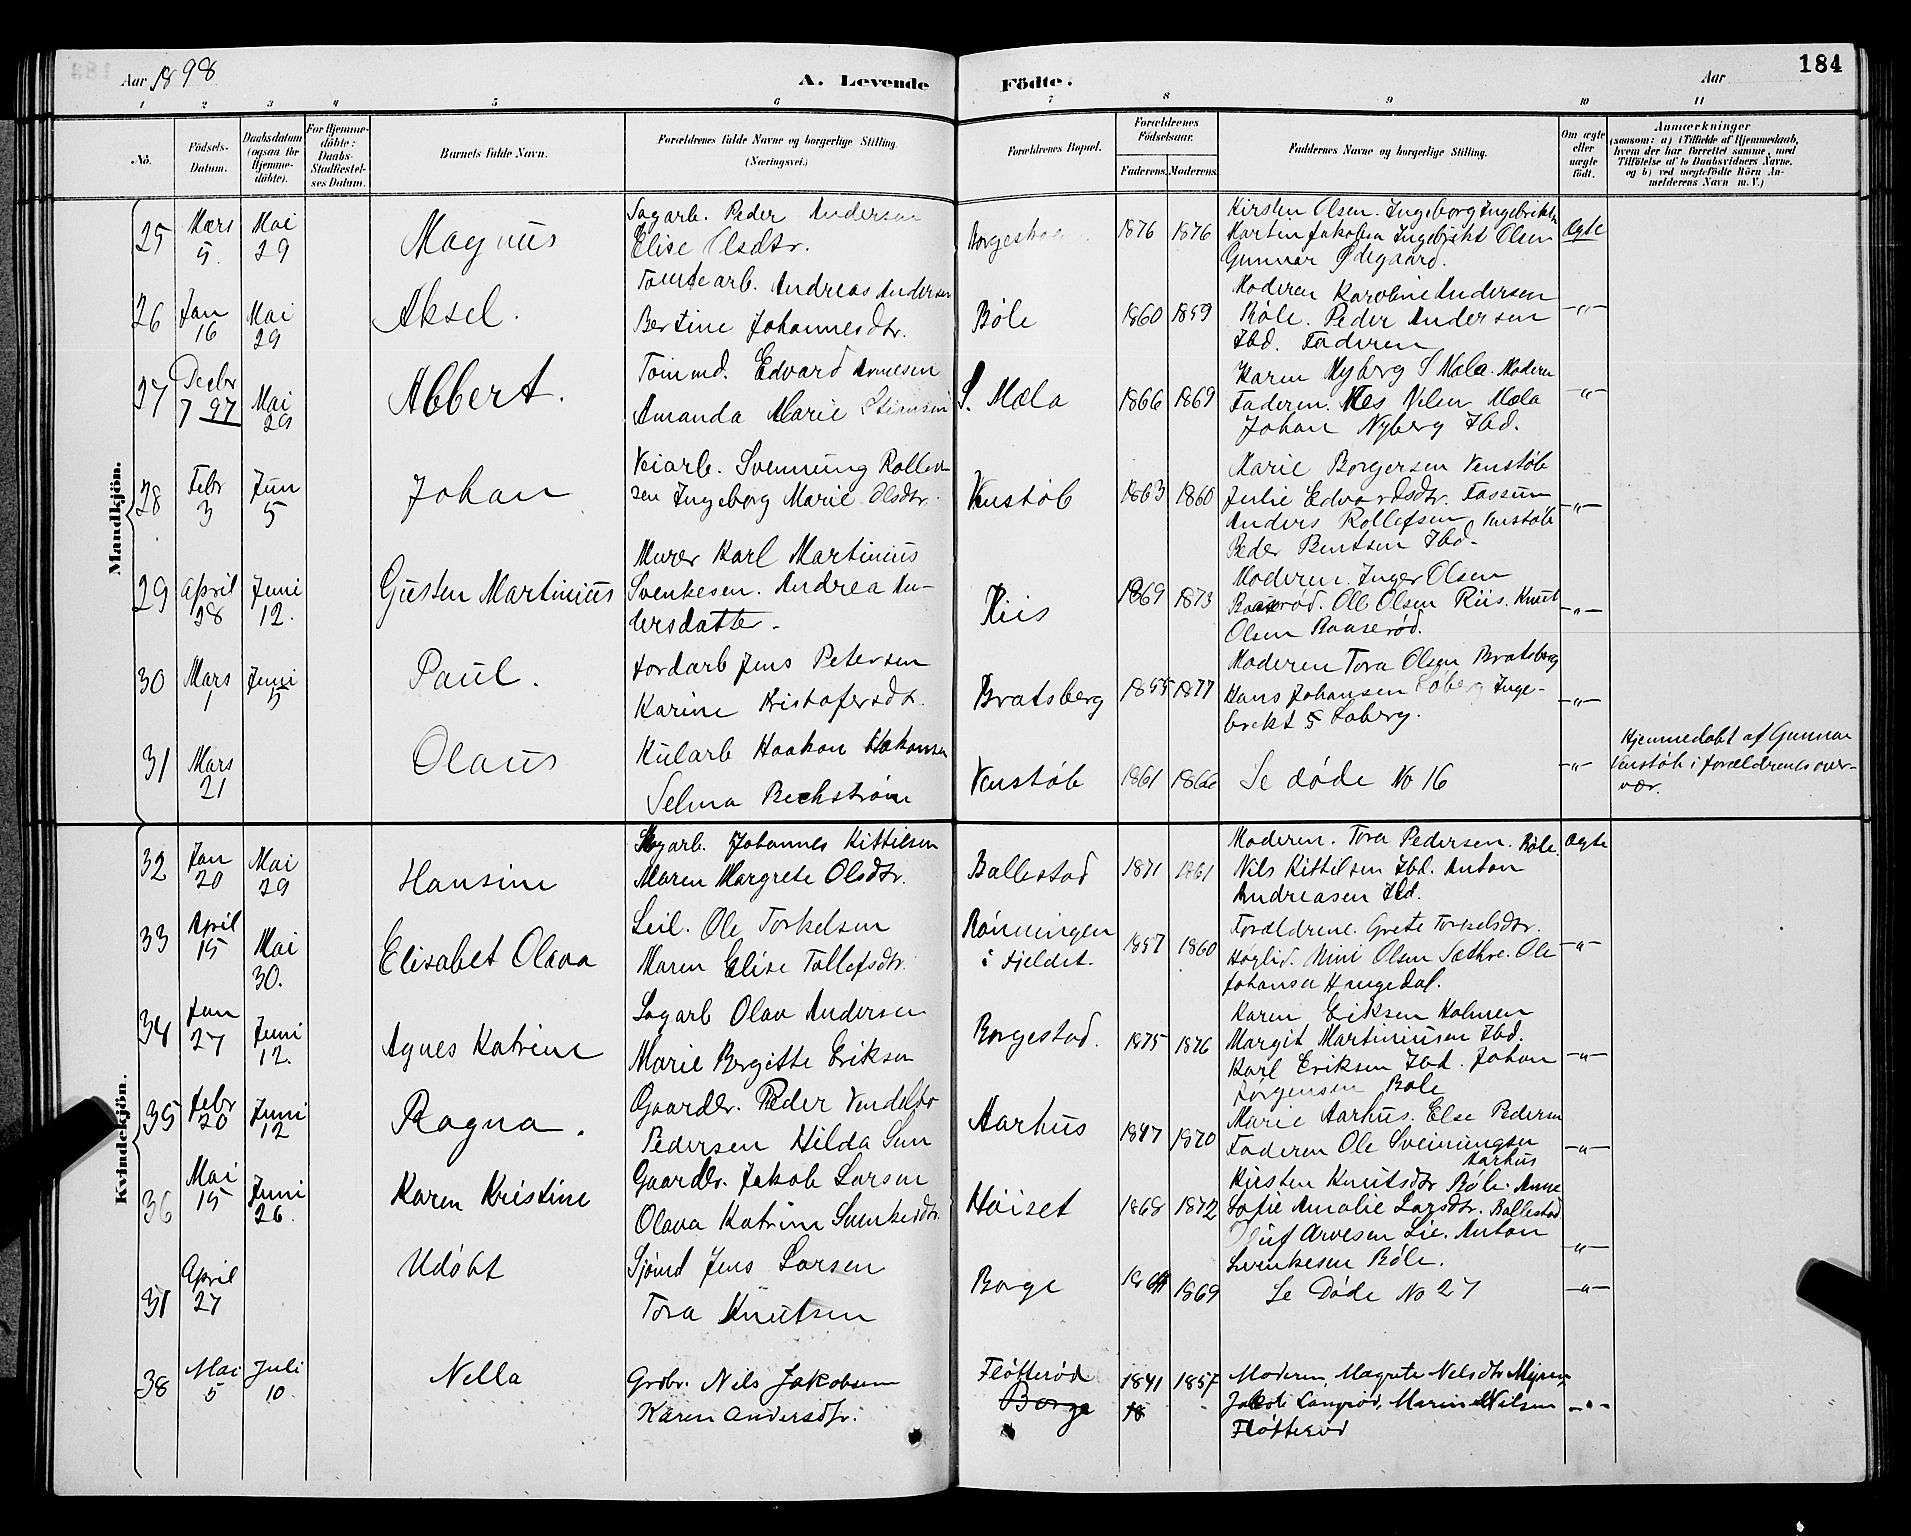 184
Aar 1898
A. Levende
Födte.
Aar
1 2 3 4 5 6 7 8 9 10 11
No.
Födsels-
Datum.
Daabsdatum
(ogsaa for
Hjemme-
döbte).
For Hjemme-
döbte:
Daabs-
Stadfæstel-
ses Datum.
Barnets fulde Navn.
Forældrenes fulde Navne og borgerlige Stilling.
(Næringsvei.)
Forældrenes Bopæl.
Forældrenes
Födselsaar.
Faderens.
Moderens.
Faddernes Navne og borgerlige Stilling.
Om ægte
eller
uægte
født.
Anmærkninger
(saasom: a) i Tilfælde af Hjemmedaab,
hvem der har forrettet samme, med
Tilföielse af to Daabsvidners Navne.
og b) ved uægtefödte Börn An-
melderens Navn m. V.)
Mandkjön.
25 Mars 5. Mai 29 Magnus
Sagarb. Peder Andersen
Elise Olsdtr.
1876 1876
Kirsten Olsen. Ingeborg
Martin Jakobsen Ingebrikt Olsen
Gunnar Ødegaard.
Ægte
26 Jan 16 Mai 29 Aksel.
Tomtearb. Andreas Andersen
Bertine Johannesdtr.
Bøle 1860 1859
Moderen Karoline Andersen
Bøle. Peder Andersen
Ibd. Faderen
-"-
27 Decbr 7 97 Mai 29 Albert.
Tømmd. Edvard Arnesen
Amanda Marie
S. Mæla 1866 1869
Karen Nyberg S Mæla. Moderen
Faderen. Nilsen Mæla
Johan Nyberg Ibd.
-"-
28 Febr 3 Jun 5 Johan
Veiarb. Svennung Rollef
sen Ingeborg Marie Olsdtr.
Venstøb 1863 1860
Marie Borgersen Venstøb
Julie Edvardsdtr. Fossum
Anders Rollefsen Venstøb
Peder Bentsen Ibd.
-"-
29 April 28 Juni 12. Gusten Martinius
Murer Karl Martinius
Svenkesen. Andrea An-
dersdatter.
Riis 1869 1873
Moderen. Inger Olsen
Baaserød. Ole Olsen Riis. Knut
Olsen Baaserød.
-"-
30 Mars 1 Juni 5 Paul.
Jordarb Jens Petersen
Karine Kristofersdtr.
Bratsberg 1855 1877
Moderen Tora Olsen Bratsberg
Hans Johansen Inge-
brekt
-"-
31 Mars 21 Olaus
Kularb Haakon Hakonsen
Selma Beckstrøm
Venstøb 1861 1866
Se døde No 16
-"-
Hjemmedøbt af Gunnar
Venstøb i forældrenes over-
vær.
Kvindekjön.
32 Jan 20 Mai 29 Hansine
Sagarb. Johannes Kittilsen
Maren Margrete Olsdtr.
Ballestad 1871 1861
Moderen. Tora Pedersen. Bøle.
Nils Kittilsen Ibd. Anton
Andreasen Ibd.
Ægte
33 April 15 Mai 30. Elisabet Olava
Leil. Ole Torkelsen
Maren Elise Tollefsdtr.
Rønningen
i Fjeldet. 1857 1860
Forældrene. Grete Torkelsdtr.
Høglid. Mine Olsen Sæthre. Ole
Johansen
-"-
34 Jan 27 Juni 12. Agnes Katrine
Sagarb Olav Andersen
Marie Bergitte Eriksen
Borgestad. 1875 1876
Karen Eriksen Holmen
Margit Martiniusen Ibd.
Karl Eriksen Ibd. Johan
Jørgensen Bøle
-"-
35 Febr 20 Juni 12 Ragna.
Gaardbr. Peder Vendelbo
Pedersen Hilda
Aarhus 1847 1870
Marie Aarhus. Else Pedersen
Faderen Ole Sveinungsen
Aarhus
-"-
36 Mai 15 Juni 26. Karen Kristine
Gaardbr. Jakob Larsen
Olava Katrine Svenkesdtr.
Høiset 1868 1872
Kirsten Knutsdtr Bøle. Anne
Sofie Amalie Larsdtr. Ballestad
Oluf Arvesen Lie. Anton
Svenkesen Bøle.
-"-
37 April 27 Udøbt
Sjømd Jens Larsen
Tora Knutsen
Borge 1869
Se Døde No 27
-"-
38 Mai 5 Juli 10. Nella
Grdbr. Nils Jakobsen
Karen Andersdtr.
Fløtterød
Borge
1841 1857
18
Moderen, Magrete Nilsdtr Myren
Jakob Langrød, Marine Nilsen
Fløtterød
-"-